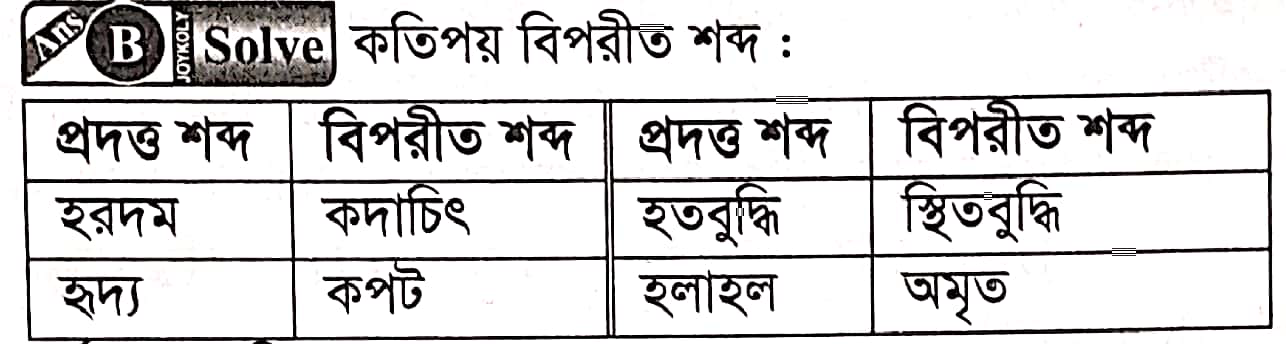 Ans B JOYKOLY Solve কতিপয় বিপরীত শব্দ :
প্রদত্ত শব্দ বিপরীত শব্দ প্রদত্ত শব্দ বিপরীত শব্দ
হরদম কদাচিৎ হতবুদ্ধি স্থিতবুদ্ধি
হৃদ্য কপট হলাহল অমৃত